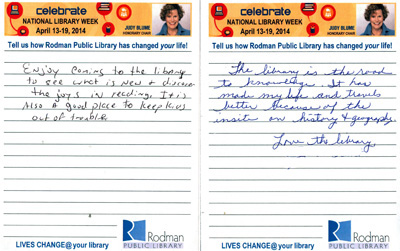 celebrate
NATIONAL LIBRARY WEEK
April 13-19, 2014
JUDY BLUME
HONORARY CHAIR
Tell us how Rodman Public Library has changed your life!
Enjoy coming to the library
to see what is new & discover
the joys in reading. It is
also a good place to keep k.us
out of trouble
LIVES CHANGE@your library
Rodman
PUBLIC LIBRARY
celebrate
NATIONAL LIBRARY WEEK
April 13-19, 2014
JUDY BLUME
HONORARY CHAIR
Tell us how Rodman Public Library has changed your life!
The library is the road
to knowledge. It has
made my life and travels
better because of the
insite on history & geography.
Love the library
LIVES CHANGE@your library
Rodman
PUBLIC LIBRARY